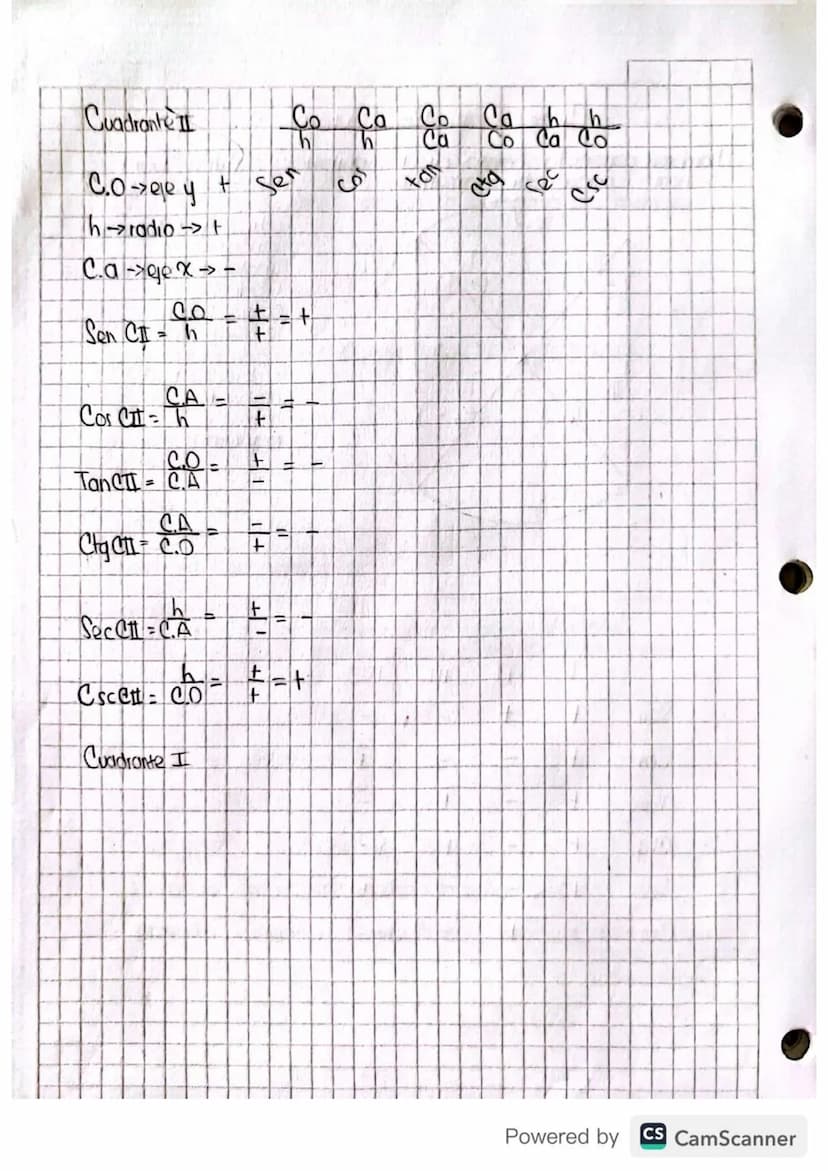 Cuadrante II
Co/h Ca/h Co/Ca Ca/Co h/Ca h/Co
Sen Cos tan Ctg Sec Csc
C.O → eje y +
h → radio → +
C.a → eje x → -
Sen CII = C.O/h = +/+ = +
Cos CII = C.A/h = -/+ = -
Tan CII = C.O/C.A = +/- = -
Ctg CII = C.A/C.O = -/+ = -
Sec CII = h/C.A = +/- = -
Csc CII = h/C.O = +/+ = +
Cuadrante I
Powered by CS CamScanner